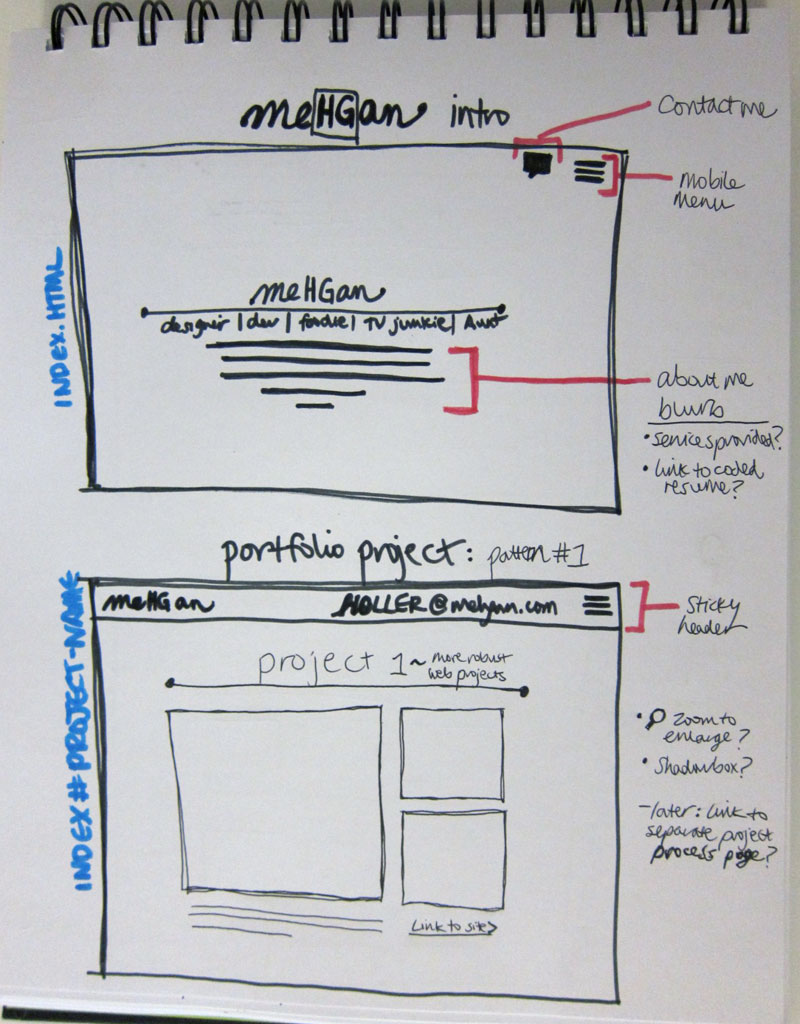 meHGan intro
Contact me
mobile
menu
INDEX.HTML
meHGan
designer | dev | foodie | TV junkie |
about me
blurb
• services provided?
• link to coded
resume?
portfolio project: pattern #1
INDEX#PROJECT-NAME
meHGan HOLLER@ .com
Sticky
header
project 1 ~ more robust
web projects
• Zoom to
enlarge?
• Shadowbox?
- later: link to
separate project
process page?
Link to site>